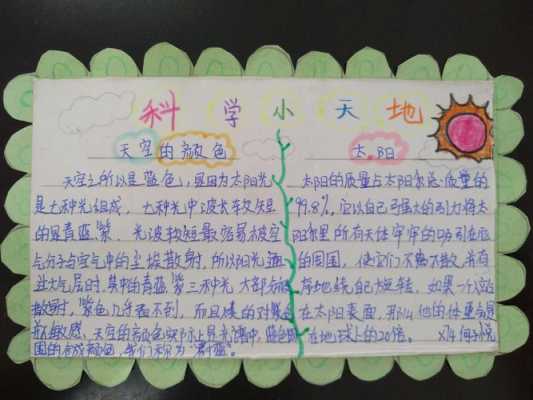 科学小天地
天空的颜色
天空之所以是蓝色,是因为太阳光
是七种光组成,七种光中波长较短
的是青蓝紫,光波较短最容易被空
气分子与空气中的尘埃散射,所以阳光
过大气层时,其中的青蓝,紫三种光大部分
散射,紫色几乎看不到,而且
敏感,天空的颜色实际上是光谱中,蓝色
的合成颜色,我们称为
太阳
太阳的质量占太阳系总质量的
99.8%,它以自己强大的引力将太
阳系里所有天体牢牢的吸引在
的周围,使它们不离不散,井有
地绕自己旋转,如果一个人站
在太阳表面,那么他的体重会是
在地球上的20倍。